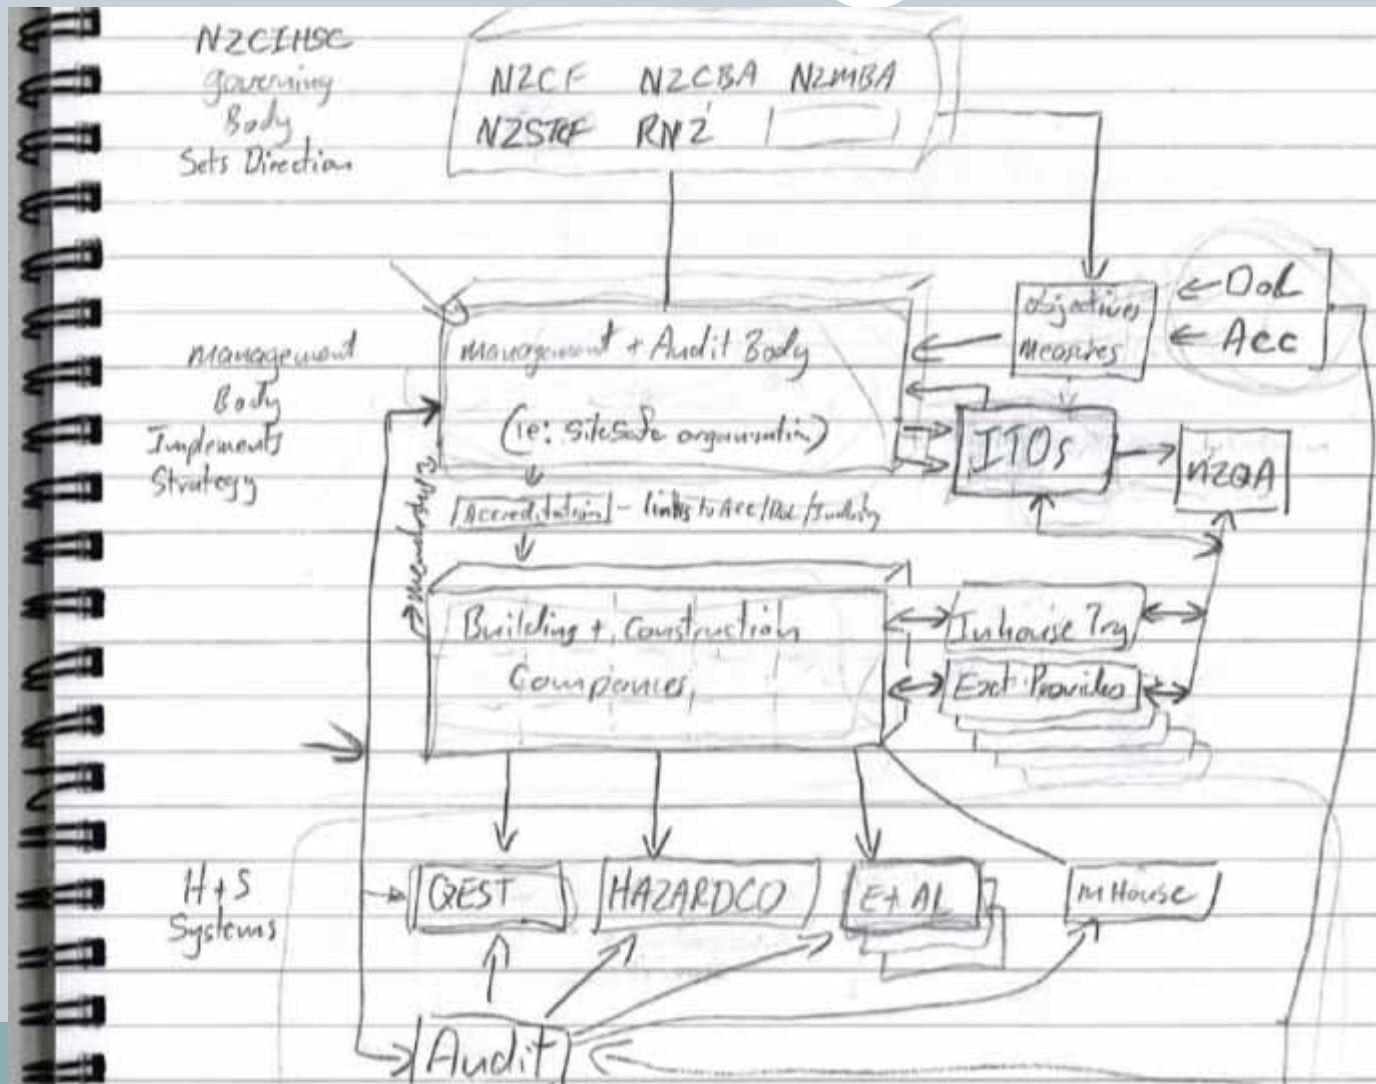 NZCIHSC
governing
Body
Sets Direction
NZCF NZCBA NZMBA
NZSTCF RMZ
management
Body
Implements
Strategy
management + Audit Body
(ie: SiteSafe organisation)
objectives
measures
← DoL
← Acc
ITOs
NZQA
Accreditation - links to Acc/DoL/Industry
membership
Building + Construction
Companies,
Inhouse Trg
Ext. Provider
H+S
Systems
QEST
HAZARDCO
Et AL
In House
Audit